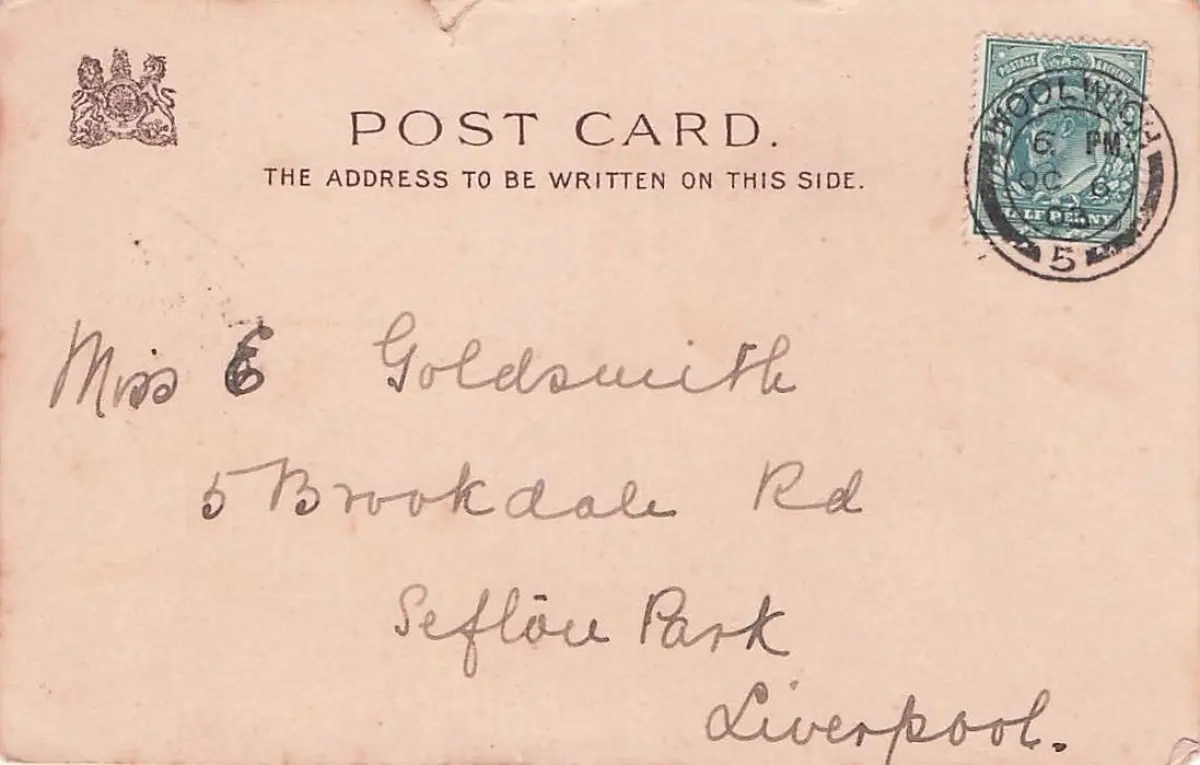 POST CARD.
THE ADDRESS TO BE WRITTEN ON THIS SIDE.
POSTAGE
HALFPENNY
WOOLWICH
6 PM
OC 6
03
5
Miss E Goldsmith
5 Brookdale Rd
Sefton Park
Liverpool.